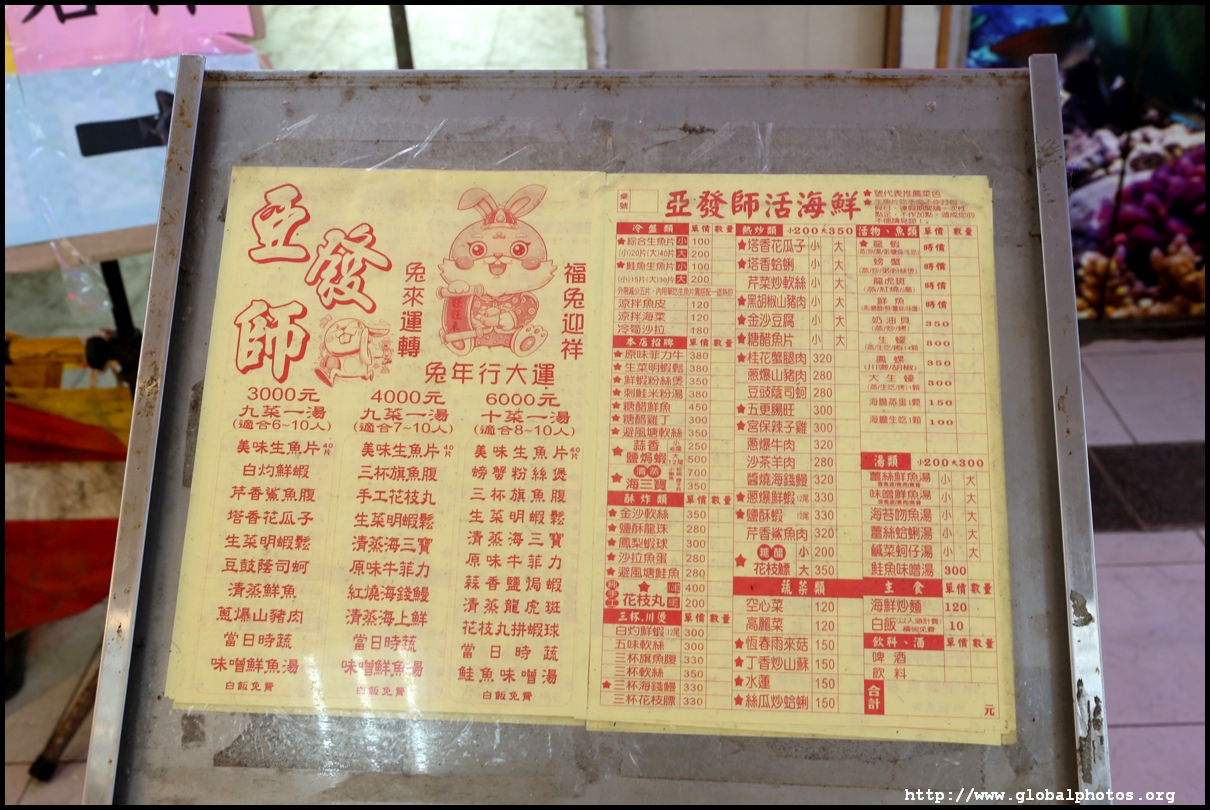 亞發師
兔來運轉
福兔迎祥
兔年行大運
3000元
九菜一湯
(適合6~10人)
美味生魚片40片
白灼鮮蝦
芹香鯊魚腹
塔香花瓜子
生菜明蝦鬆
豆鼓蔭司蚵
清蒸鮮魚
蔥爆山豬肉
當日時蔬
味噌鮮魚湯
白飯免費
4000元
九菜一湯
(適合7~10人)
美味生魚片40片
三杯旗魚腹
手工花枝丸
生菜明蝦鬆
清蒸海三寶
原味牛菲力
紅燒海錢鰻
清蒸海上鮮
當日時蔬
味噌鮮魚湯
白飯免費
6000元
十菜一湯
(適合8~10人)
美味生魚片40片
螃蟹粉絲煲
三杯旗魚腹
生菜明蝦鬆
清蒸海三寶
原味牛菲力
蒜香鹽焗蝦
清蒸龍虎斑
花枝丸拼蝦球
當日時蔬
鮭魚味噌湯
白飯免費
桌號
亞發師活海鮮
★號代表推薦菜色
冷盤類 單價 數量
★綜合生魚片 小 100
(小)20片(大)40片 大 200
★鮭魚生魚片 小 100
(小)15片(大)30片 大 200
涼拌魚皮 120
涼拌海菜 120
冷筍沙拉 180
本店招牌 單價 數量
★原味菲力牛 380
★生菜明蝦鬆 380
★鮮蝦粉絲煲 350
★刺鮭米粉湯 380
★糖醋鮮魚 450
★糖醋雞丁 300
★避風塘軟絲 350
★蒜香鹽焗蝦 250 500
★清蒸海三寶 700 350
酥炸類 單價 數量
★金沙軟絲 350
★鹽酥龍珠 280
★鳳梨蝦球 300
★沙拉魚蛋 280
★避風塘鮭魚 280
★花枝丸 400 200
三杯.川燙 單價 數量
白灼鮮蝦 12尾 300
五味軟絲 300
三杯旗魚腹 330
三杯軟絲 350
★三杯海錢鰻 330
三杯花枝膘 330
熱炒類 小200大350
★塔香花瓜子 小 大
★塔香蛤蜊 小 大
芹菜炒軟絲 小 大
★黑胡椒山豬肉 小 大
★金沙豆腐 小 大
★糖醋魚片 小 大
★桂花蟹腿肉 320
蔥爆山豬肉 280
豆豉蔭司蚵 280
★五更腸旺 300
★宮保辣子雞 300
蔥爆牛肉 320
沙茶羊肉 280
醬燒海錢鰻 320
★蔥爆鮮蝦 12尾 330
★鹽酥蝦 12尾 330
芹香鯊魚肉 320
★糖醋花枝膘 小 200 大 350
蔬菜類 單價 數量
空心菜 120
高麗菜 120
★恆春雨來菇 150
★丁香炒山蘇 150
★水蓮 150
★絲瓜炒蛤蜊 150
活物、魚類 單價 數量
★龍蝦 時價
螃蟹 時價
龍虎斑 時價
鮮魚 時價
奶油貝 350
生蠔 300
鳳螺 350
(川燙/胡椒)
大生蠔 300
海膽蒸蛋1顆 150
海膽生吃1顆 100
湯類 小200大300
薑絲鮮魚湯 小 大
味噌鮮魚湯 小 大
海苔吻魚湯 小 大
薑絲蛤蜊湯 小 大
鹹菜蚵仔湯 小 大
鮭魚味噌湯 300
主食 單價 數量
海鮮炒麵 120
白飯 10
飲料、酒 單價 數量
啤酒
飲料
合計 元
http://www.globalphotos.org